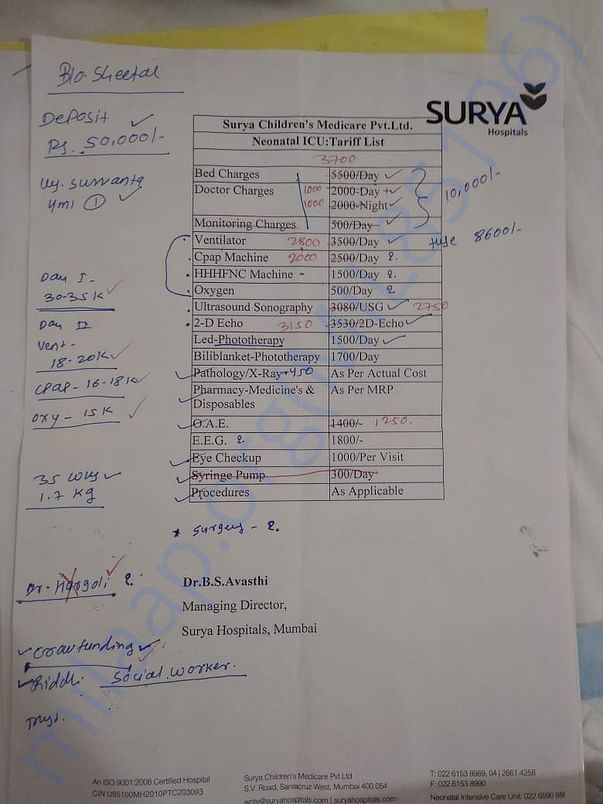 B/o. Sheetal
Deposit
Rs. 50,000/-
SURYA
Hospitals
Surya Children's Medicare Pvt.Ltd.
Neonatal ICU:Tariff List
3700
Bed Charges 5500/Day
Doctor Charges 1000 2000-Day +
1000 2000-Night
10,000/-
Monitoring Charges 500/Day
8600/-
Ventilator 2800 3500/Day
Cpap Machine 2000 2500/Day 2.
HHHFNC Machine - 1500/Day 2.
Oxygen 500/Day 2
Ultrasound Sonography 3080/USG 2750
2-D Echo 3150 3530/2D-Echo
Led-Phototherapy 1500/Day
Biliblanket-Phototherapy 1700/Day
Pathology/X-Ray 450 As Per Actual Cost
Pharmacy-Medicine's & Disposables As Per MRP
O.A.E. 1400/- 1250.
E.E.G. 2 1800/-
Eye Checkup 1000/Per Visit
Syringe Pump 300/Day
Procedures As Applicable
Day I-
30-35K
Day II
Vent-
18-20K
CPAP-16-18K
Oxy - 15K
35 wks
1.7 kg
* Surgery - 2.
Dr. 2.
Dr.B.S.Avasthi
Managing Director,
Surya Hospitals, Mumbai
Crowfunding
Riddhi Social worker.
Trust.
An ISO 9001:2008 Certified Hospital
CIN U85100MH2010PTC203093
Surya Children's Medicare Pvt Ltd
S.V. Road, Santacruz West, Mumbai 400 054
write@suryahospitals.com | suryahospitals.com
T: 022 6153 8989, 04 | 2661 4258
F: 022 6153 8990
Neonatal Intensive Care Unit: 022 6690
milaap.org